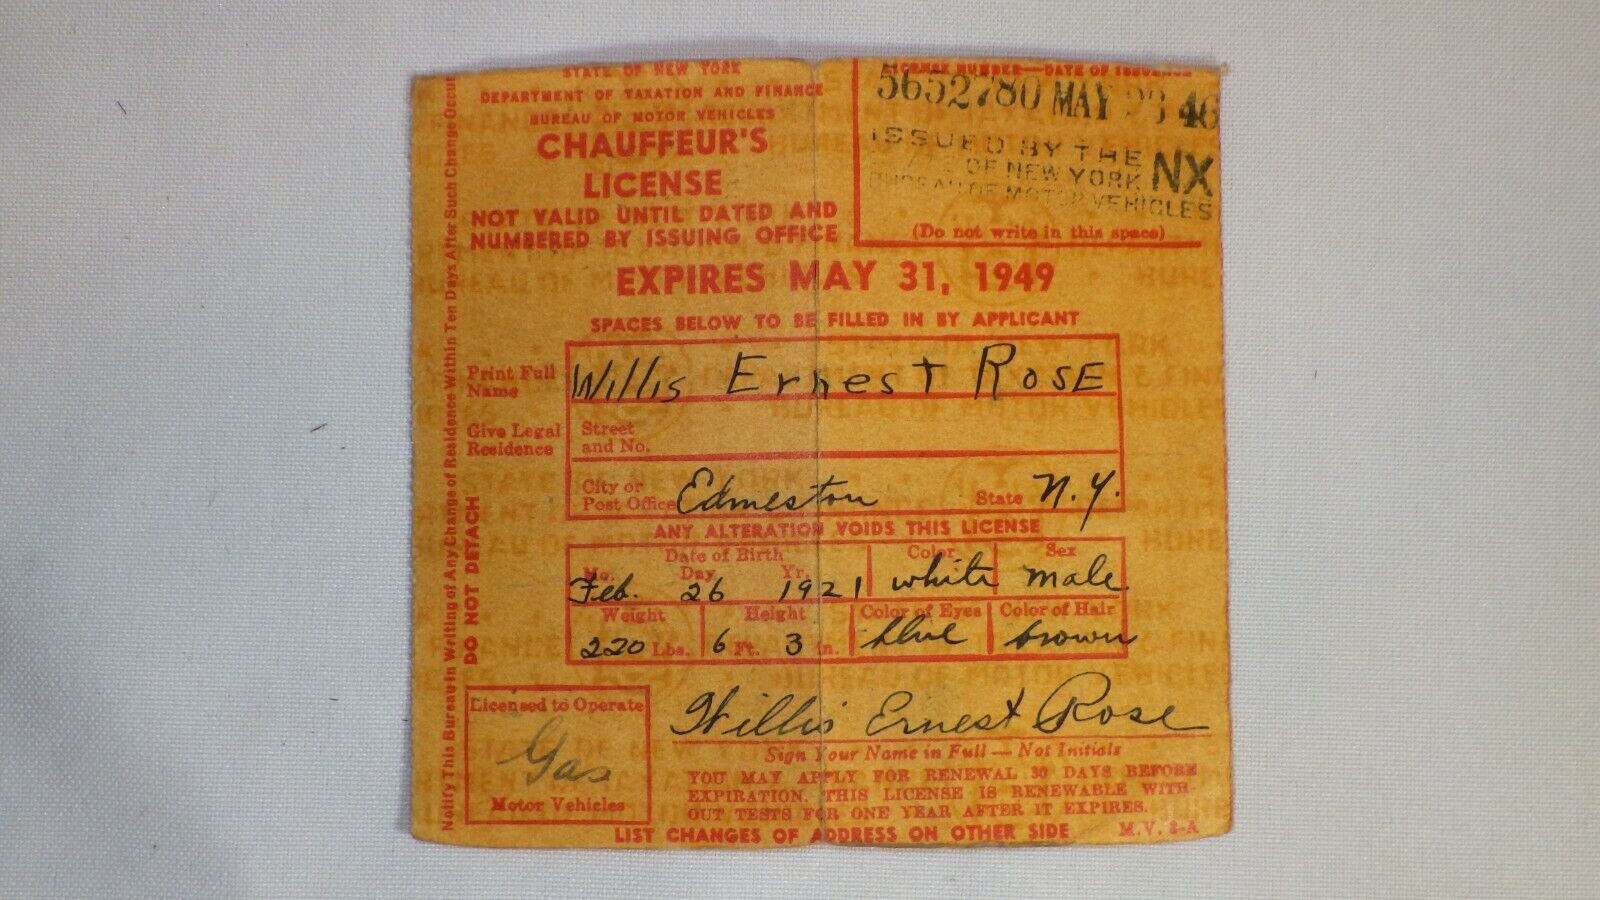 STATE OF NEW YORK
DEPARTMENT OF TAXATION AND FINANCE
BUREAU OF MOTOR VEHICLES
CHAUFFEUR'S
LICENSE
NOT VALID UNTIL DATED AND
NUMBERED BY ISSUING OFFICE
LICENSE NUMBER—DATE OF ISSUANCE
5652780 MAY 46
ISSUED BY THE
OF NEW YORK NX
BUREAU OF MOTOR VEHICLES
(Do not write in this space)
EXPIRES MAY 31, 1949
SPACES BELOW TO BE FILLED IN BY APPLICANT
Print Full Name Willis Ernest Rose
Give Legal Residence
Street and No.
City or Post Office Edmeston State N.Y.
ANY ALTERATION VOIDS THIS LICENSE
Date of Birth Color Sex
Mo. Day Yr.
Feb. 26 1921 white male
Weight Height Color of Eyes Color of Hair
220 Lbs. 6 Ft. 3 In. blue brown
Licensed to Operate
Gas
Motor Vehicles
Willis Ernest Rose
Sign Your Name in Full — Not Initials
YOU MAY APPLY FOR RENEWAL 30 DAYS BEFORE
EXPIRATION. THIS LICENSE IS RENEWABLE WITH-
OUT TESTS FOR ONE YEAR AFTER IT EXPIRES.
LIST CHANGES OF ADDRESS ON OTHER SIDE M.V. 2-A
Notify This Bureau in Writing of Any Change of Residence Within Ten Days After Such Change
DO NOT DETACH